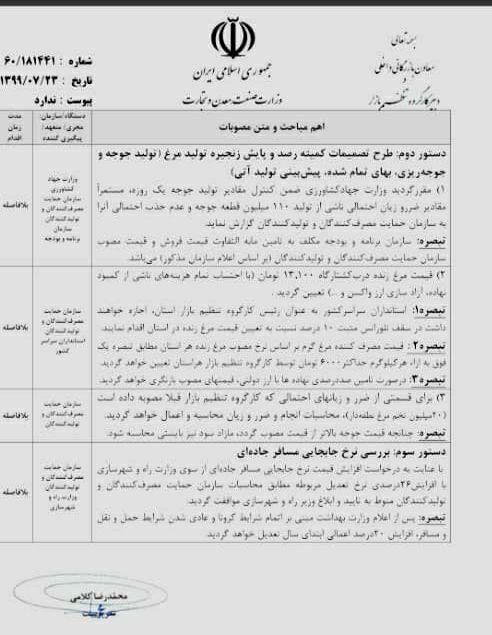 بسمه تعالی
معاون بازرگانی داخلی
و
دبیر کارگروه تنظیم بازار
جمهوری اسلامی ایران
وزارت صنعت، معدن و تجارت
شماره : ۶۰/۱۸۱۴۴۱
تاریخ : ۱۳۹۹/۰۷/۲۳
پیوست : ندارد
اهم مباحث و متن مصوبات
دستگاه/سازمان:
مجری/ متعهد/
پیگیری کننده
مدت
زمان
اقدام
دستور دوم: طرح تصمیمات کمیته رصد و پایش زنجیره تولید مرغ (تولید جوجه و
جوجه‌ریزی، بهای تمام شده، پیش‌بینی تولید آتی)
۱) مقررگردید وزارت جهادکشاورزی ضمن کنترل مقادیر تولید جوجه یک روزه، مستمراً
مقادیر ضررو زیان احتمالی ناشی از تولید ۱۱۰ میلیون قطعه جوجه و عدم جذب احتمالی آنرا
به سازمان حمایت مصرف‌کنندگان و تولیدکنندگان گزارش نماید.
تبصره: سازمان برنامه و بودجه مکلف به تامین مابه التفاوت قیمت فروش و قیمت مصوب
سازمان حمایت مصرف‌کنندگان و تولیدکنندگان (بر اساس اعلام سازمان مذکور) می‌باشد.
وزارت جهاد
کشاورزی
سازمان حمایت
مصرف‌کنندگان و
تولیدکنندگان
سازمان
برنامه و بودجه
بلافاصله
۲) قیمت مرغ زنده درب‌کشتارگاه ۱۳,۱۰۰ تومان (با احتساب تمام هزینه‌های ناشی از کمبود
نهاده، آزاد سازی ارز واکسن و ...) تعیین گردید .
تبصره۱: استانداران سراسرکشور به عنوان رئیس کارگروه تنظیم بازار استان، اجازه خواهند
داشت در سقف تلورانس مثبت ۱۰ درصد نسبت به تعیین قیمت مرغ زنده در استان اقدام نمایند.
تبصره۲ : قیمت مصرف کننده مرغ گرم بر اساس نرخ مصوب مرغ زنده هر استان مطابق تبصره یک
فوق به ازاء هرکیلوگرم حداکثر۶۰۰۰ تومان توسط کارگروه تنظیم بازار هراستان تعیین خواهد گردید.
تبصره۳: درصورت تامین صددرصدی نهاده ها با ارز دولتی، قیمتهای مصوب بازنگری خواهد گردید.
سازمان حمایت
مصرف‌کنندگان و
تولیدکنندگان
استانداران سراسر
کشور
بلافاصله
۳) برای قسمتی از ضرر و زیانهای احتمالی که کارگروه تنظیم بازار قبلا مصوبه داده است
(۲۰میلیون تخم مرغ نطفه‌دار)، محاسبات انجام و ضرر و زیان محاسبه و اعمال خواهد گردید.
تبصره: چنانچه قیمت جوجه بالاتر از قیمت مصوب گردد، مازاد سود نیز بایستی محاسبه شود.
سازمان حمایت
مصرف‌کنندگان و
تولیدکنندگان
بلافاصله
دستور سوم: بررسی نرخ جابجایی مسافر جاده‌ای
با عنایت به درخواست افزایش قیمت نرخ جابجایی مسافر جاده‌ای از سوی وزارت راه و شهرسازی
با افزایش۲۶درصدی نرخ تعدیل مربوطه مطابق محاسبات سازمان حمایت مصرف‌کنندگان و
تولیدکنندگان منوط به تایید و ابلاغ وزیر راه و شهرسازی موافقت گردید.
تبصره: پس از اعلام وزارت بهداشت مبنی بر اتمام شرایط کرونا و عادی شدن شرایط حمل و نقل
و مسافر، افزایش ۲۰درصد اعمالی ابتدای سال تعدیل خواهد گردید.
سازمان حمایت
مصرف‌کنندگان و
تولیدکنندگان
وزارت راه و
شهرسازی
بلافاصله
محمدرضا کلامی